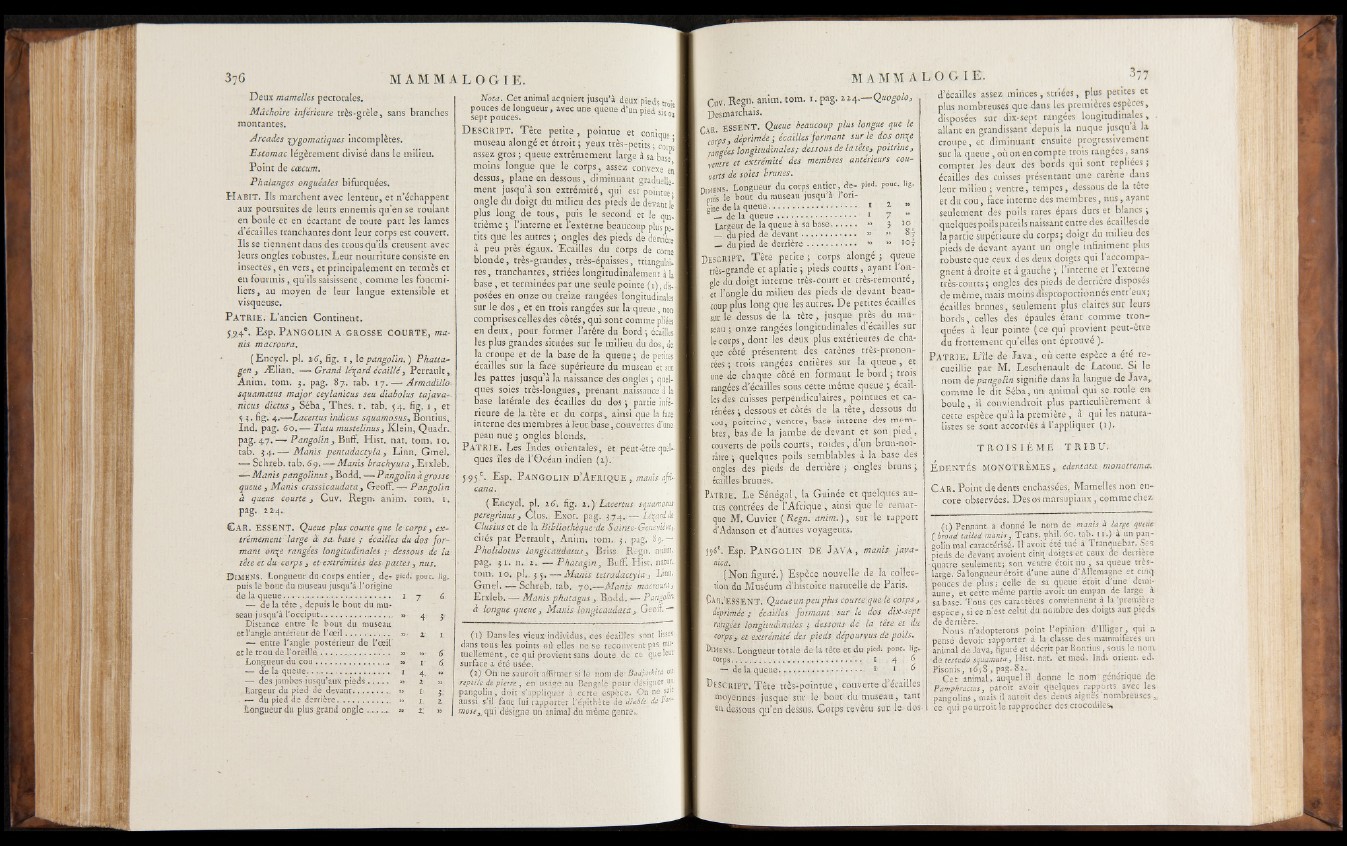 376
MAMMALOGIE.
Deux mamelles pectorales.
Mâchoire inférieure très-grèle, sans branches
montantes.
Arcades zygomatiques incomplètes.
Estomac légèrement divisé dans le milieu.
Point de cœcum.
Phalanges onguéales bifurquées.
HABIT. Ils marchent avec lenteur, et n'échappent
aux poursuites de leurs ennemis qu'en se roulant
en boule et en écartant de toute part les lames
d'écailles tranchantes dont leur corps est couvert.
Ils se tiennent dans des trous qu'ils creusent avec
leurs ongles robustes. Leur nourriture consiste en
insectes, en vers, et principalement en termès et
en fourmis, qu'ils saisissent, comme les fourmi-
liers, au moyen de leur langue extensible et
visqueuse.
PATRIE. L'ancien Continent.
594e. Esp. PANGOLIN A GROSSE COURTE, ma-
nis macroura.
(Encycl. pl. 26, fig. 1, le pangolin.) Phatta-
gen, Ælian. — Grand lézard écaillé, Perrault,
Anim. tom. 3. pag. 87. tab. 17. — Armadillo
squamatus major ceylanicus seu diabolus tajava-
nicus dictus, Séba, Thes. 1. tab. 54. fig. 1, et
53. fig. 4.—Lacertus indicus squamosus, Bontius,
Ind. pag. 60. — Tatu mustelinus, Klein, Quadr.
pag. 47. — Pangolin, Buff. Hist. nat. tom. 10.
tab. 34. — Manis pentadactyla, Linn. Gmel.
— Schreb. tab. 69. — Manis brachyura, Erxleb.
— Manis pangolinus, Bodd. — Pangolin à grosse
queue, Manis crassicaudata, Geoff. — Pangolin
à queue courte, Cuv. Regn. anim. tom. 1.
pag. 224.
CAR. ESSENT. Queue plus courte que le corps, ex-
trêmement large à sa base; écailles du dos for-
mant onze rangées longitudinales; dessous de la
tête et du corps, et extrémités des pattes, nus.
DIMENS. Longueur du corps entier, de- pied. pouc. lig.
puis le bout du museau jusqu'à l'origine
de la queue.................. 1 7 6
— de la tête, depuis le bout du mu-
seau jusqu'à l'occiput.................. » 4 3
Distance entre le bout du museau
et l'angle antérieur de l'œil.......... » 2 1
— entre l'angle postérieur de l'œil
et le trou de l'oreille.................. » » 6
Longueur du cou.................. » 1 6
— de la queue.................. 1 4 »
— des jambes jusqu'aux pieds..... » 2 »
Largeur du pied de devant........ » 1 3
— du pied de derrière............ » 1 2
Longueur du plus grand ongle...... » 2 »
Nota. Cet animal acquiert jusqu'à deux pieds trois
pouces de longueur, avec une queue d'un pied six ou
sept pouces.
DESCRIPT. Tête petite, pointue et conique;
museau alongé et étroit; yeux très-petits; corps
assez gros; queue extrêmement large à sa base,
moins longue que le corps, assez convexe en
dessus, plane en dessous, diminuant graduelle-
ment jusqu'à son extrémité, qui est pointue;
ongle du doigt du milieu des pieds de devant le
plus long de tous, puis le second et le qua-
trième; l'interne et l'externe beaucoup plus pe-
tits que les autres; ongles des pieds de derrière
à peu près égaux. Ecailles du corps de corne
blonde, très-grandes, très-épaisses, triangulai-
res, tranchantes, striées longitudinalement à la
base, et terminées par une seule pointe (1), dis-
posées en onze ou treize rangées longitudinales
sur le dos, et en trois rangées sur la queue, non
comprises celles des côtés, qui sont comme pliées
en deux, pour former l'arête du bord; écailles
les plus grandes situées sur le milieu du dos, de
la croupe et de la base de la queue; de petites
écailles sur la face supérieure du museau et sur
les pattes jusqu'à la naissance des ongles; quel-
ques soies très-longues, prenant naissance à la
base latérale des écailles du dos; partie infé-
rieure de la tête et du corps, ainsi que la face
interne des membres à leur base, couvertes d'une
peau nue; ongles blonds.
PATRIE. Les Indes orientales, et peut-être quel-
ques îles de l'Océan indien (2).
595e. Esp. PANGOLIN D'AFRIQUE, manis afri-
cana.
(Encycl. pl. 26. fig. 2.) Lacertus squamosus
peregrinus, Clus. Exot. pag. 374. — Lézard de
Clusius et de la Bibliothèque de Sainte-Geneviève,
cités par Perrault, Anim. tom. 3. pag. 89. —
Pholidotus longicaudatus, Briss. Regn. anim.
pag. 31. n. 2. — Phatagin, Buff. Hist. natur.
tom. 10. pl. 35. — Manis tetradactyla, Linn.
Gmel. — Schreb. tab. 70.—Manis macroura,
Erxleb. — Manis phatagus, Bodd. — Pangolin
à longue queue, Manis longicaudata, Geoff. —
(1) Dans les vieux individus, ces écailles sont lisses
dans tous les points où elles ne se recouvrent pas mu-
tuellement, ce qui provient sans doute de ce que leur
surface a été usée.
(2) On ne sauroit affirmer si le nom de
reptile de pierre, en usage au Bengale pour désigner un
pangolin, doit s'appliquer à cette espèce. On ne sait
aussi s'il faut lui rapporter l'épithète de diable de
mose, qui désigne un animal du même genre.
MAMMALOGIE.
377
Cuv. Regn. anim. tom. 1. pag. 224.—Quogolo,
Desmarchais.
CAR. ESSENT. Queue beaucoup plus longue que le
corps, déprimée; écailles formant sur le dos onze
rangées longitudinales; dessous de la tête, poitrine,
ventre et extrémité des membres antérieurs cou-
verts de soies brunes.
DIMENS. Longueur du corps entier, de- pied. pouc. lig.
puis le bout du museau jusqu'à l'ori-
gine de la queue.................. 1 2 »
— de la queue.................. 1 7 »
Largeur de la queue à sa base...... » 3 10
— du pied de devant............ » » 8½
— du pied de derrière........... » » 10½
DESCRIPT. Tête petite; corps alongé; queue
très-grande et aplatie; pieds courts, ayant l'on-
gle du doigt interne très-court et très-remonté,
et l'ongle du milieu des pieds de devant beau-
coup plus long que les autres. De petites écailles
sur le dessus de la tête, jusque près du mu-
seau; onze rangées longitudinales d'écailles sur
le corps, dont les deux plus extérieures de cha-
que côté présentent des carènes très-pronon-
cées; trois rangées entières sur la queue, et
une de chaque côté en formant le bord; trois
rangées d'écailles sous cette même queue; écail-
les des cuisses perpendiculaires, pointues et ca-
rénées; dessous et côtés de la tête, dessous du
cou, poitrine, ventre, base interne des mem-
bres, bas de la jambe de devant et son pied,
couverts de poils courts, roides, d'un brun-noi-
râtre; quelques poils semblables à la base des
ongles des pieds de derrière; ongles bruns;
écailles brunes.
PATRIE. Le Sénégal, la Guinée et quelques au-
tres contrées de l'Afrique, ainsi que le remar-
que M. Cuvier (Regn. anim.), sur le rapport
d'Adanson et d'autres voyageurs.
596e. Esp. PANGOLIN DE JAVA, manis java-
nica.
(Non figuré.) Espèce nouvelle de la collec-
tion du Muséum d'histoire naturelle de Paris.
CAR. ESSENT. Queue un peu plus courte que le corps,
déprimée; écailles formant sur le dos dix-sept
rangées longitudinales; dessous de la tête et du
corps, et extrémité des pieds dépourvus de poils.
DIMENS. Longueur totale de la tête et du pied. pouc. lig.
corps.................. 1 4 6
— de la queue.................. 1 1 6
DESCRIPT. Tête très-pointue, couverte d'écailles
moyennes jusque sur le bout du museau, tant
en dessous qu'en dessus. Corps revêtu sur le dos
d'écailles assez minces, striées, plus petites et
plus nombreuses que dans les premières espèces,
disposées sur dix-sept rangées longitudinales,
allant en grandissant depuis la nuque jusqu'à la
croupe, et diminuant ensuite progressivement
sur la queue, où on en compte trois rangées, sans
compter les deux des bords qui sont repliées;
écailles des cuisses présentant une carène dans
leur milieu; ventre, tempes, dessous de la tête
et du cou, face interne des membres, nus, ayant
seulement des poils rares épars durs et blancs;
quelques poils pareils naissant entre des écailles de
la partie supérieure du corps; doigt du milieu des
pieds de devant ayant un ongle infiniment plus
robuste que ceux des deux doigts qui l'accompa-
gnent à droite et à gauche; l'interne et l'externe
très-courts; ongles des pieds de derrière disposés
de même, mais moins disproportionnés entr'eux;
écailles brunes, seulement plus claires sur leurs
bords, celles des épaules étant comme tron-
quées à leur pointe (ce qui provient peut-être
du frottement qu'elles ont éprouvé).
PATRIE. L'île de Java, où cette espèce a été re-
cueillie par M. Leschenault de Latour. Si le
nom de pangolin signifie dans la langue de Java,
comme le dit Séba, un animal qui se roule en
boule, il conviendroit plus particulièrement à
cette espèce qu'à la première, à qui les natura-
listes se sont accordés à l'appliquer (1).
TROISIÈME TRIBU.
ÉDENTÉS MONOTRÈMES, edentata monotrema.
CAR. Point de dents enchassées. Mamelles non en-
core observées. Des os marsupiaux, comme chez
(1) Pennant a donné le nom de manis à large queue
(broad tailed manis, Trans. phil. 60. tab. 11.) à un pan-
golin mal caractérisé. Il avoit été tué à Tranquebar. Ses
pieds de devant avoient cinq doigts et ceux de derrière
quatre seulement; son ventre étoit nu, sa queue très-
large. Sa longueur étoit d'une aune d'Allemagne et cinq
pouces de plus; celle de sa queue étoit d'une demi-
aune, et cette même partie avoit un empan de large à
sa base. Tous ces caractères conviennent à la première
espèce, si ce n'est celui du nombre des doigts aux pieds
de derrière.
Nous n'adopterons point l'opinion d'Illiger, qui a
pensé devoir rapporter à la classe des mammifères un
animal de Java, figuré et décrit par Bontius, sous le nom
de testudo squamata, Hist. nat. et med. Ind. orient. ed.
Pisonis, 1658, pag. 82.
Cet animal, auquel il donne le nom générique de
Pamphractus, paroît avoir quelques rapports avec les
pangolins, mais il auroit des dents aiguës nombreuses,
ce qui pourroit le rapprocher des crocodiles.